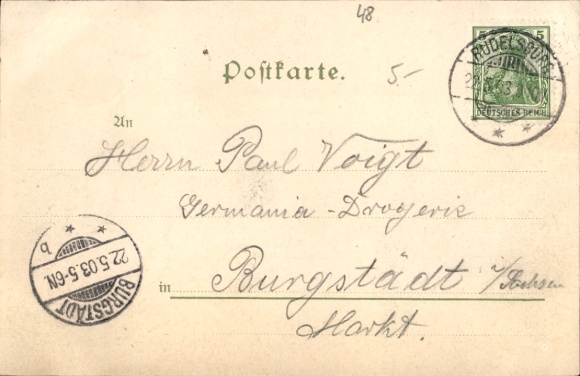 48
5
5
RUDELSBURG
DEUTSCHES REICH
Postkarte.
5.-
An
Herrn Paul Voigt
Germania-Drogerie
in Burgstädt i/Sachsen
Markt.
22.5.03.5-6N
BURGSTÄDT
b